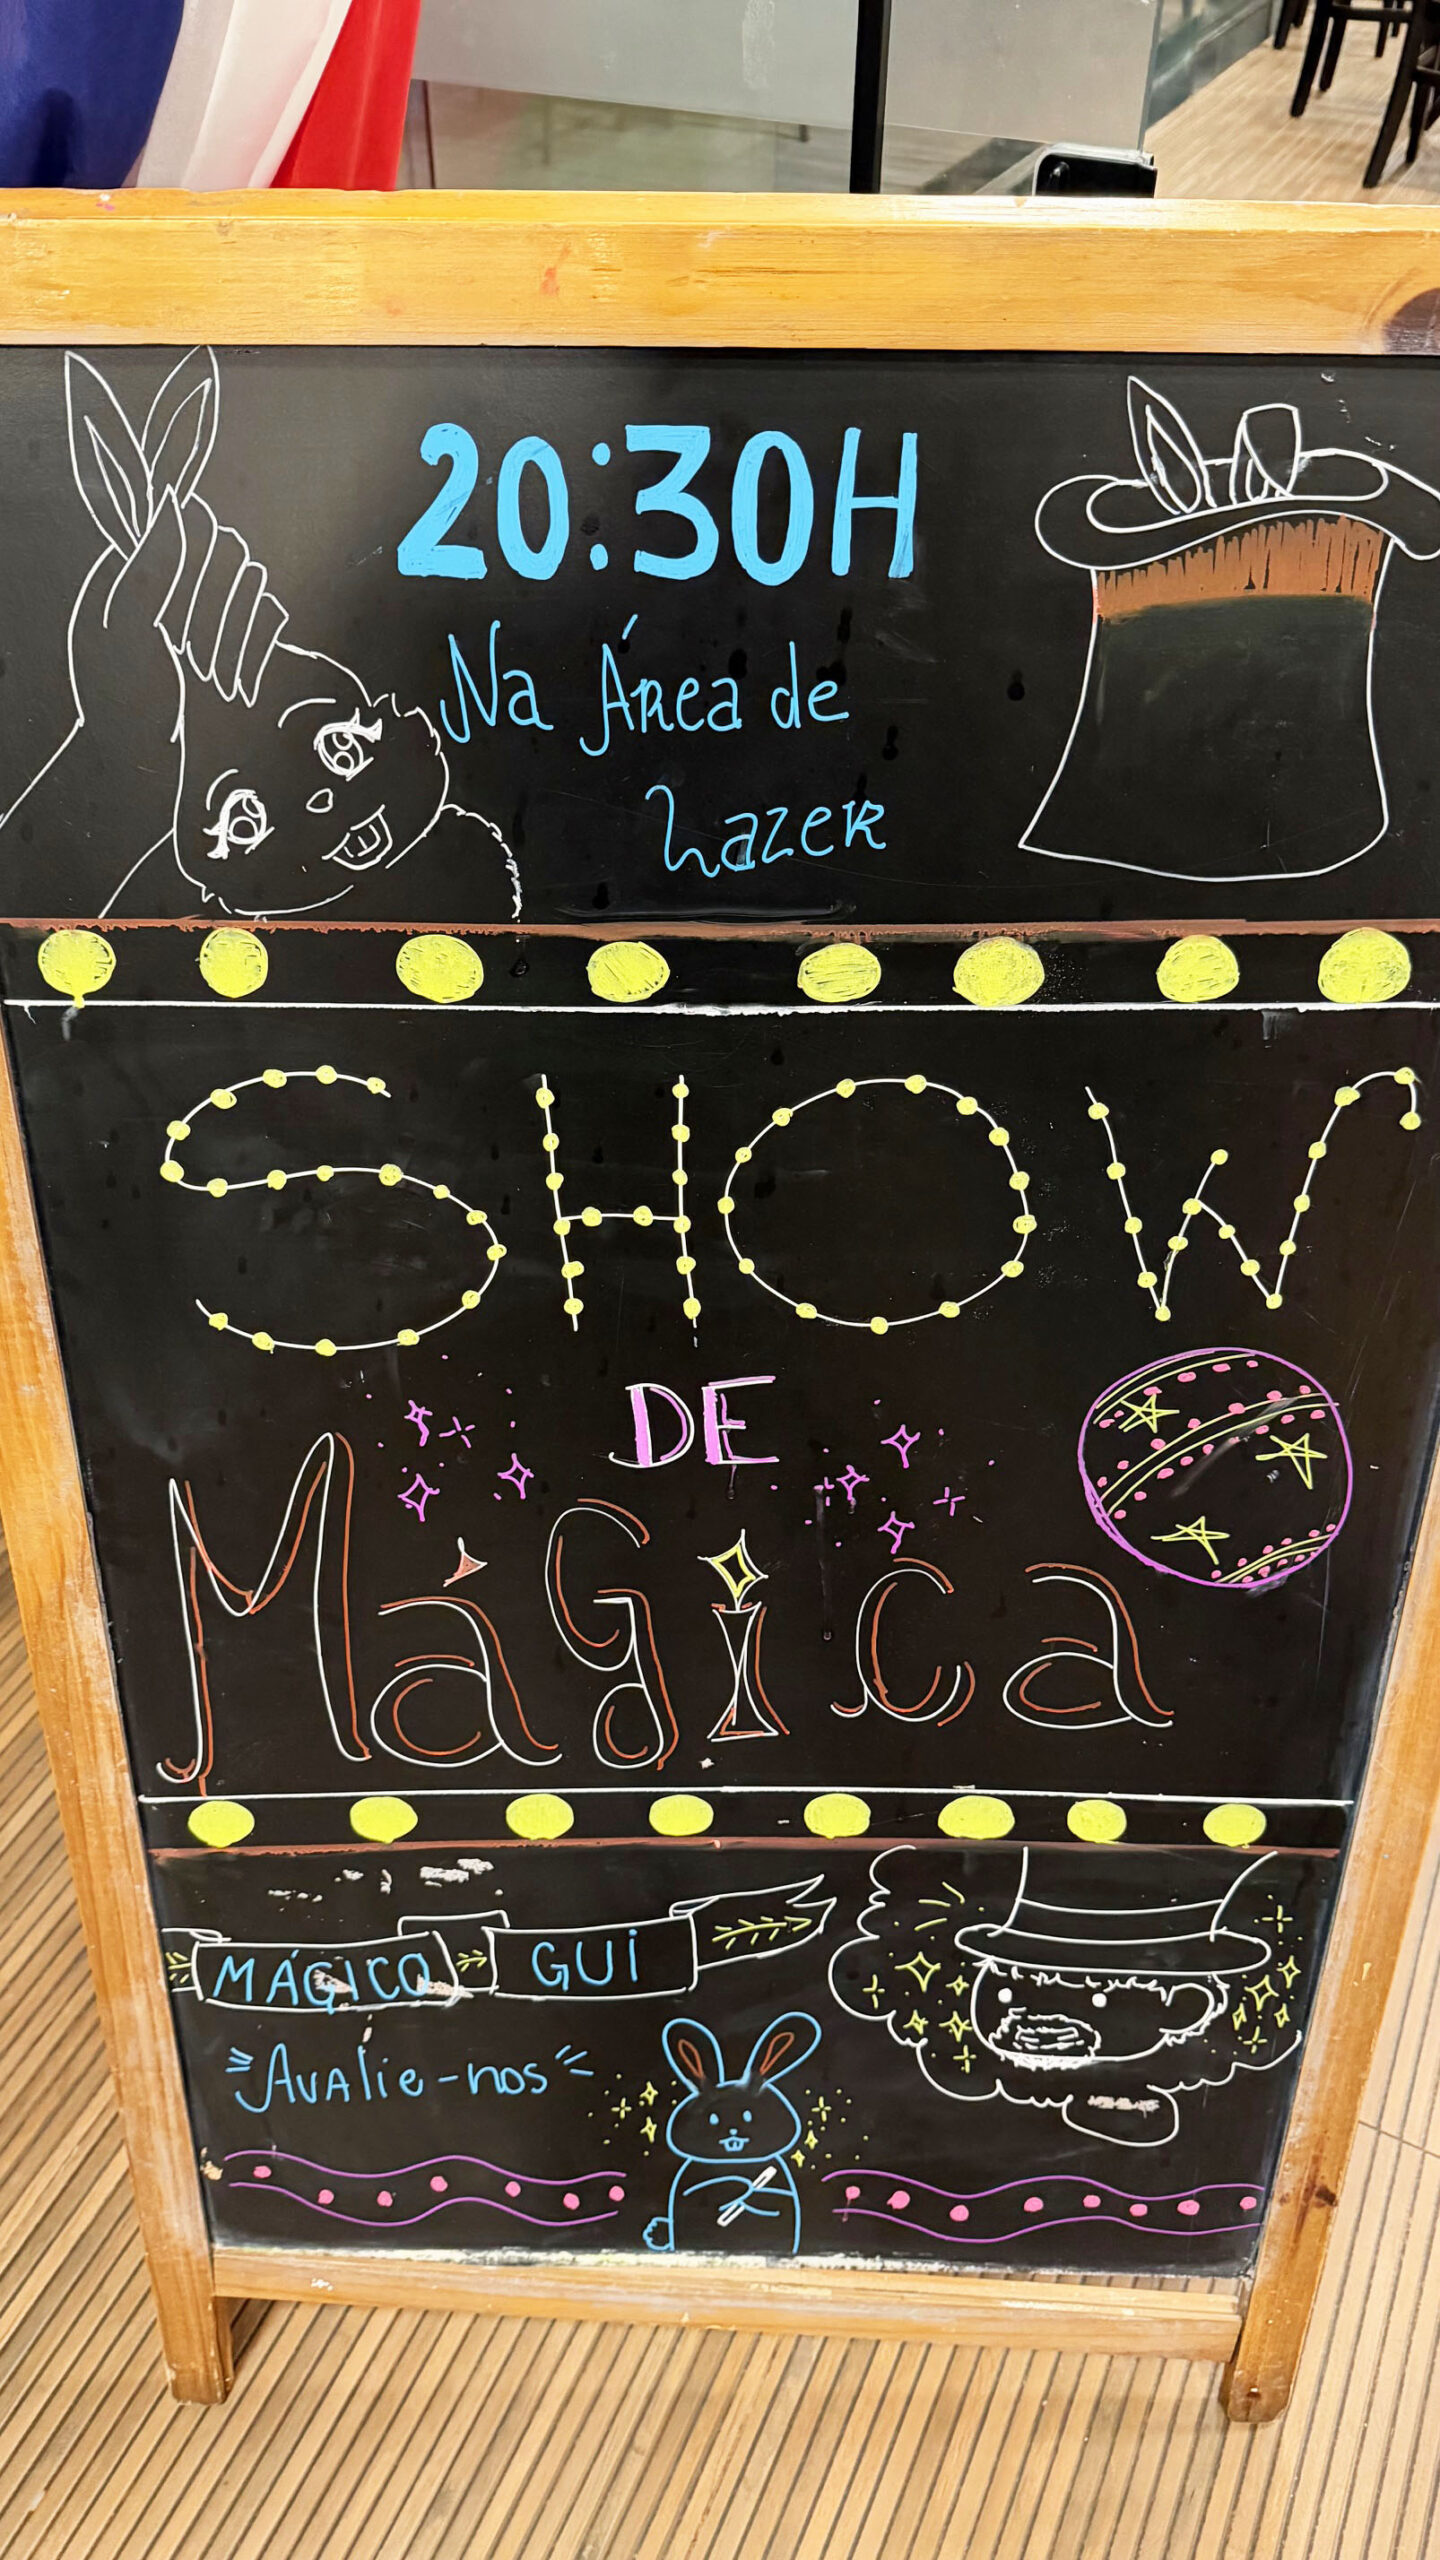 20:30H
Na Área de
Lazer
SHOW
DE
Mágica
MÁGICO GUI
Avalie-nos